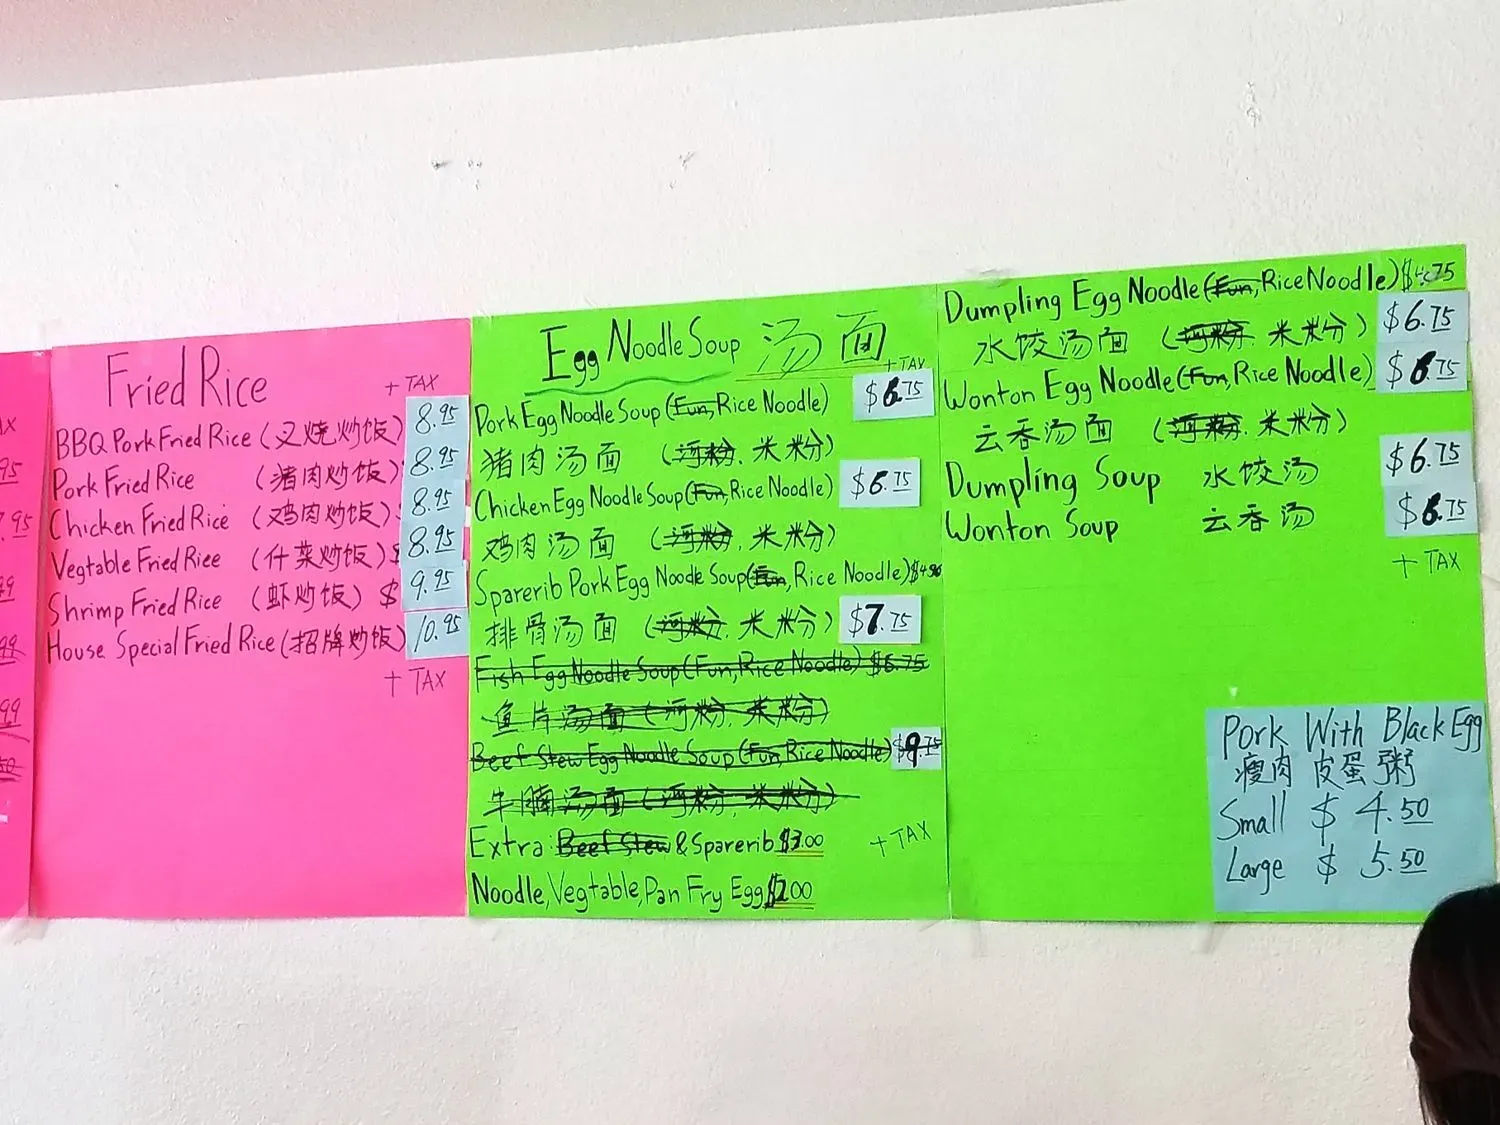 AX
95
7.95
99
99
99
50
Fried Rice
+ TAX
BBQ Pork Fried Rice (叉烧炒饭) 8.95
Pork Fried Rice (猪肉炒饭) 8.95
Chicken Fried Rice (鸡肉炒饭) $ 8.95
Vegtable Fried Rice (什菜炒饭) $ 8.95
Shrimp Fried Rice (虾炒饭) $ 9.95
House Special Fried Rice (招牌炒饭) 10.95
+ TAX
Egg Noodle Soup 汤面
+ TAX
Pork Egg Noodle Soup (Fun, Rice Noodle) $6.75
猪肉汤面 (河粉. 米粉)
Chicken Egg Noodle Soup (Fun, Rice Noodle) $6.75
鸡肉汤面 (河粉. 米粉)
Sparerib Pork Egg Noodle Soup (Fun, Rice Noodle)
排骨汤面 (河粉. 米粉) $7.75
Fish Egg Noodle Soup (Fun, Rice Noodle) $6.75
鱼片汤面 (河粉. 米粉)
Beef Stew Egg Noodle Soup (Fun, Rice Noodle) $9.75
牛腩汤面 (河粉. 米粉)
Extra Beef Stew & Sparerib $3.00
+ TAX
Noodle, Vegtable, Pan Fry Egg $2.00
Dumpling Egg Noodle (Fun, Rice Noodle)
水饺汤面 (河粉 米粉) $6.75
Wonton Egg Noodle (Fun, Rice Noodle) $6.75
云吞汤面 (河粉. 米粉)
Dumpling Soup 水饺汤 $6.75
Wonton Soup 云吞汤 $6.75
+ TAX
Pork With Black Egg
瘦肉 皮蛋粥
Small $ 4.50
Large $ 5.50